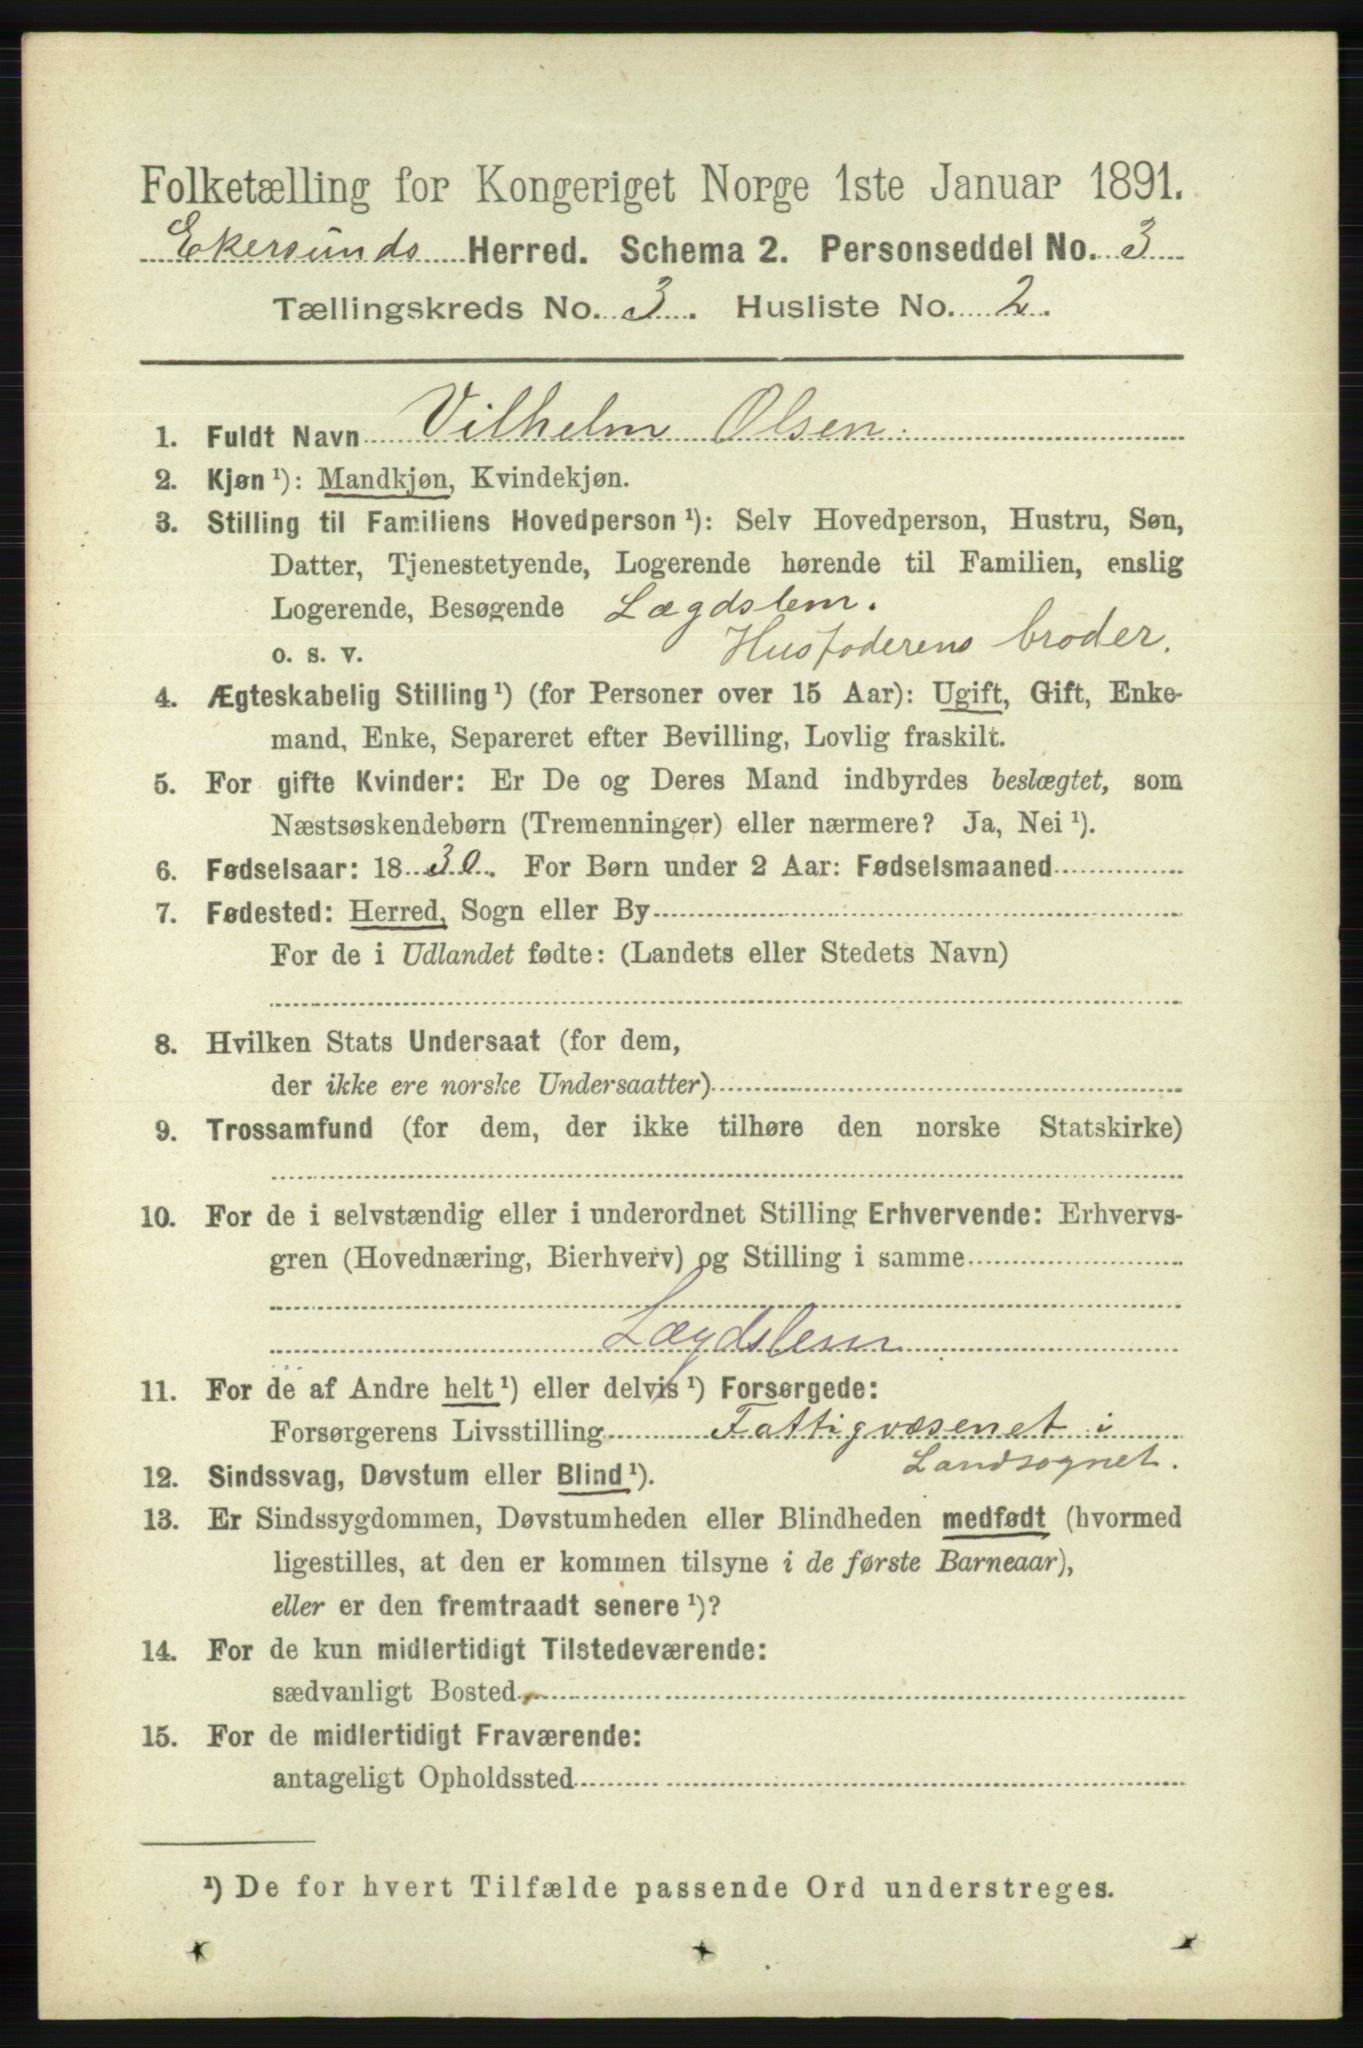 Folketælling for Kongeriget Norge 1ste Januar 1891.
Ekersunds Herred. Schema 2. Personseddel No. 3
Tællingskreds No. 3. Husliste No. 2.
1. Fuldt Navn Vilhelm Olsen.
2. Kjøn ¹): Mandkjøn, Kvindekjøn.
3. Stilling til Familiens Hovedperson ¹): Selv Hovedperson, Hustru, Søn,
Datter, Tjenestetyende, Logerende hørende til Familien, enslig
Logerende, Besøgende Lægdslem.
o. s. v. Husfoderens broder.
4. Ægteskabelig Stilling ¹) (for Personer over 15 Aar): Ugift, Gift, Enke-
mand, Enke, Separeret efter Bevilling, Lovlig fraskilt.
5. For gifte Kvinder: Er De og Deres Mand indbyrdes beslægtet, som
Næstsøskendebørn (Tremenninger) eller nærmere? Ja, Nei ¹).
6. Fødselsaar: 1830. For Børn under 2 Aar: Fødselsmaaned
7. Fødested: Herred, Sogn eller By
For de i Udlandet fødte: (Landets eller Stedets Navn)
8. Hvilken Stats Undersaat (for dem,
der ikke ere norske Undersaatter)
9. Trossamfund (for dem, der ikke tilhøre den norske Statskirke)
10. For de i selvstændig eller i underordnet Stilling Erhvervende: Erhvervs-
gren (Hovednæring, Bierhverv) og Stilling i samme
Lægdslem
11. For de af Andre helt ¹) eller delvis ¹) Forsørgede:
Forsørgerens Livsstilling Fattigvæsenet i
Landsognet.
12. Sindssvag, Døvstum eller Blind ¹).
13. Er Sindssygdommen, Døvstumheden eller Blindheden medfødt (hvormed
ligestilles, at den er kommen tilsyne i de første Barneaar),
eller er den fremtraadt senere ¹)?
14. For de kun midlertidigt Tilstedeværende:
sædvanligt Bosted
15. For de midlertidigt Fraværende:
antageligt Opholdssted
¹) De for hvert Tilfælde passende Ord understreges.